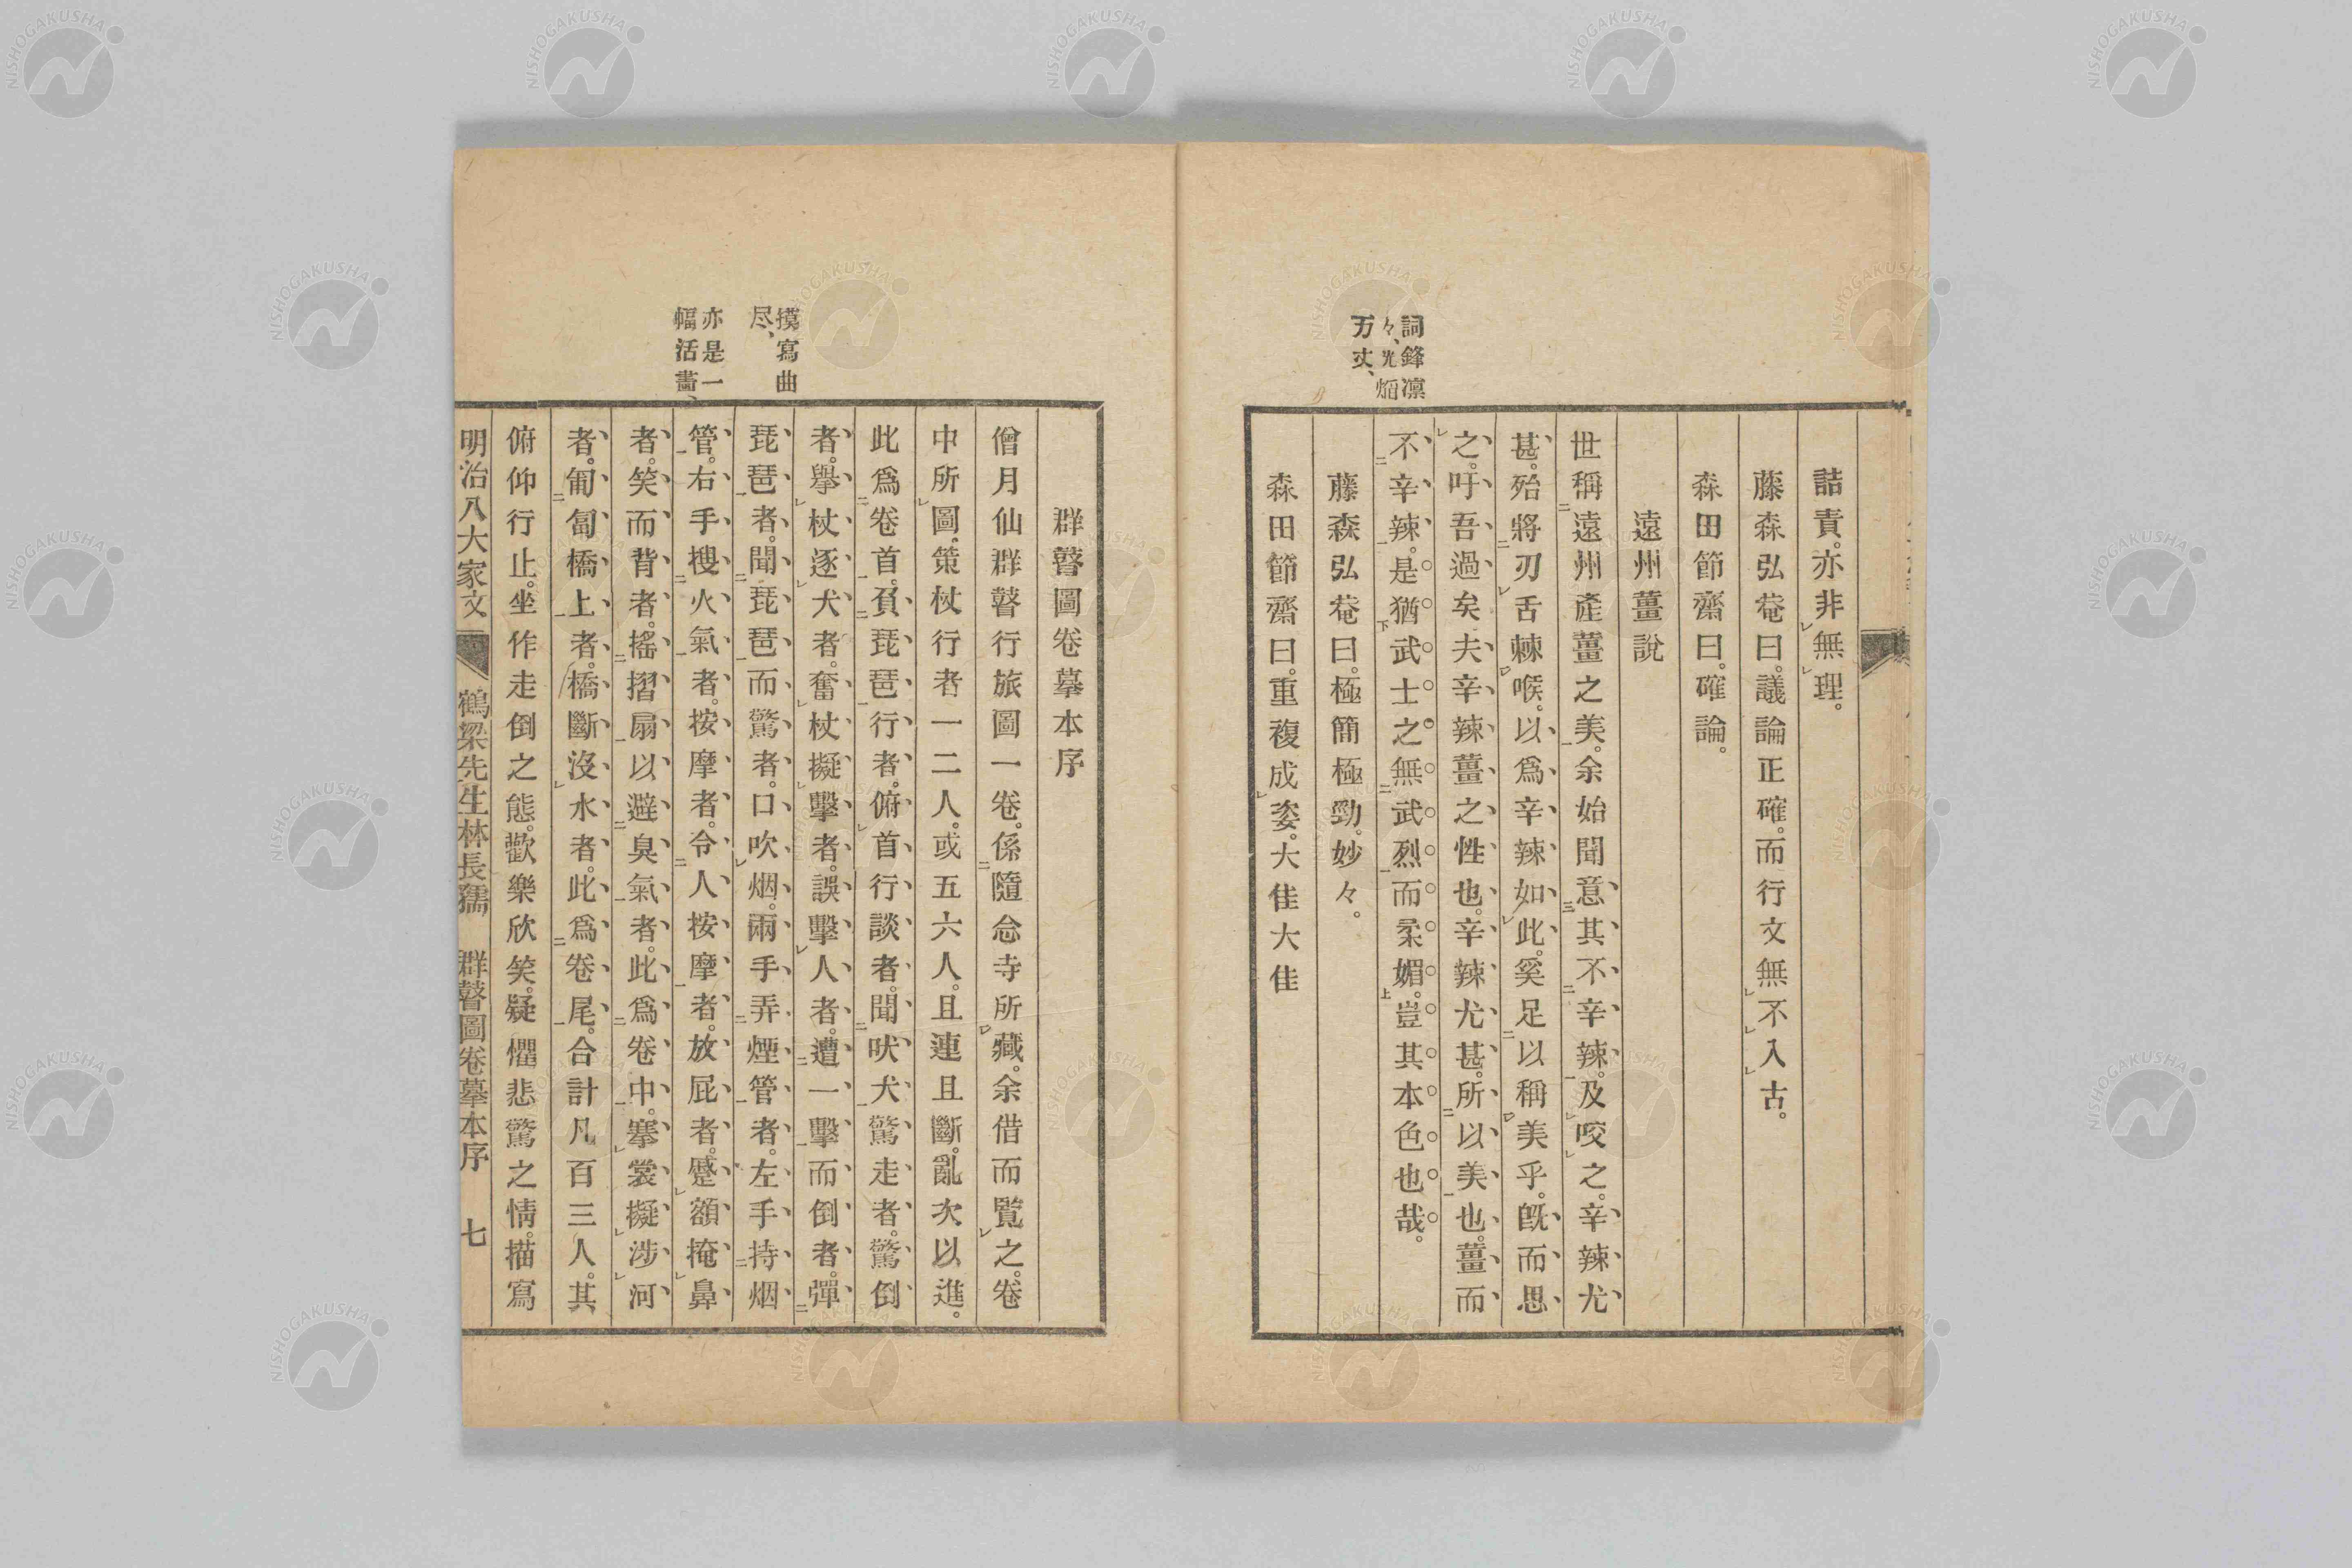 詰責。亦非無理。
藤森弘菴曰。議論正確。而行文無不入古。
森田節齋曰。確論。
遠州薑說
世稱遠州產薑之美。余始聞意其不辛辣。及咬之。辛辣尤
甚。殆將刃舌棘喉。以爲辛辣如此。奚足以稱美乎。既而思
之。吁吾過矣夫。辛辣薑之性也。辛辣尤甚。所以美也。薑而
不辛辣。是猶武士之無武烈而柔媚。豈其本色也哉。
詞鋒凛
々、光焰
万丈、
藤森弘菴曰。極簡極勁。妙々。
森田節齋曰。重複成姿。大佳大佳
群瞽圖卷摹本序
僧月仙群瞽行旅圖一卷。係隨念寺所藏。余借而覽之。卷
中所圖。策杖行者一二人。或五六人。且連且斷。亂次以進。
此爲卷首。負琵琶行者。俯首行談者。聞吠犬驚走者。驚倒
者。擧杖逐犬者。奮杖擬擊者。誤擊人者。遭一擊而倒者。彈
琵琶者。聞琵琶而驚者。口吹烟。兩手弄煙管者。左手持烟
管。右手搜火氣者。按摩者。令人按摩者。放屁者。蹙額掩鼻
者。笑而背者。搖摺扇以避臭氣者。此爲卷中。搴裳擬涉河
者。匍匐橋上者。橋斷沒水者。此爲卷尾。合計凡百三人。其
俯仰行止。坐作走倒之態。歡樂欣笑。疑懼悲驚之情。描寫
摸寫曲
尽、
亦是一
幅活畫、
明治八大家文 鶴梁先生林長孺 群瞽圖卷摹本序 七
NISHOGAKUSHA